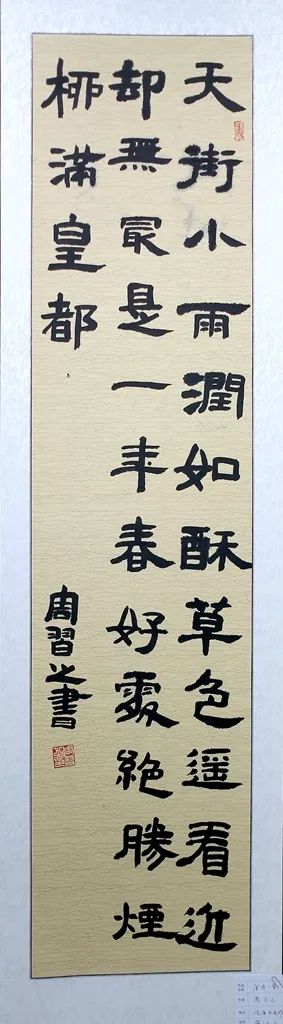 天街小雨潤如酥草色遥看近
却無最是一年春好處絶勝煙
柳滿皇都
周習之書